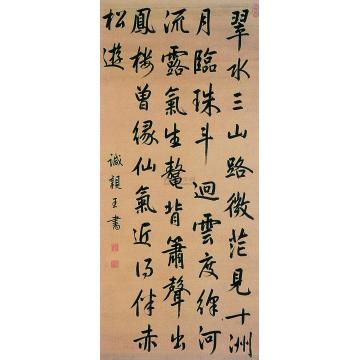 翠水三山路微茫見十洲
月臨珠斗迥雲度絳河
流露氣生鼇背簫聲出
鳳樓曾緣仙氣近得伴赤
松遊
誠親王書